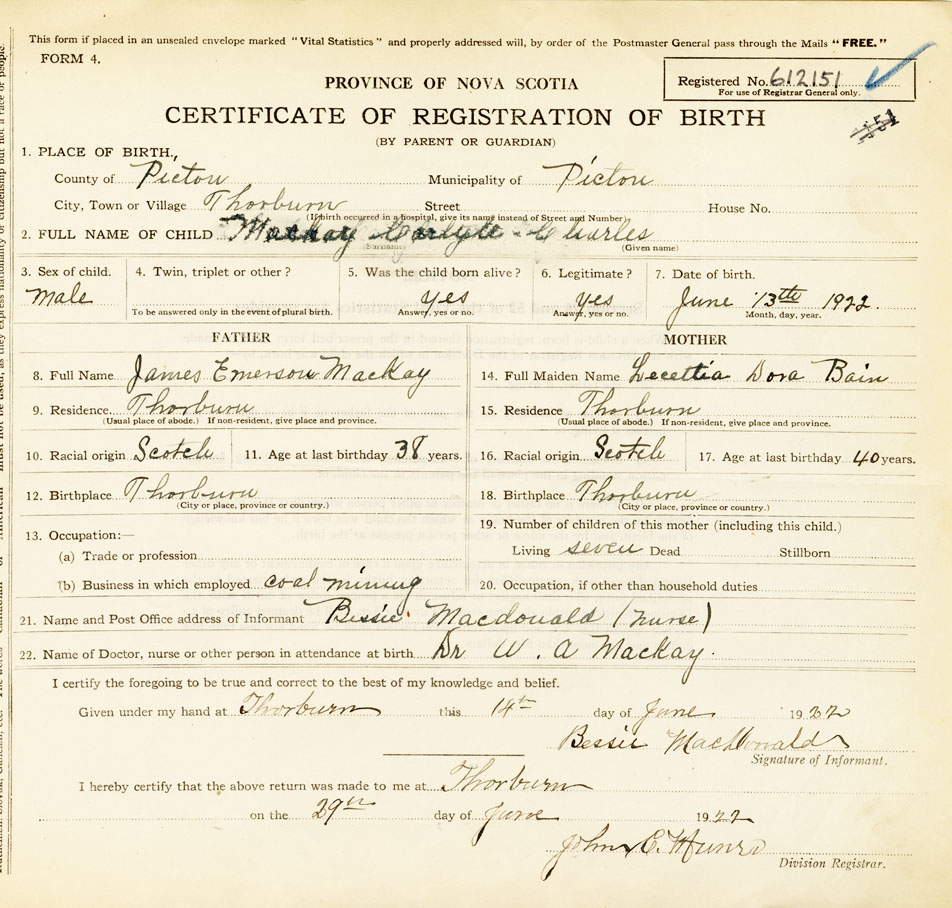 This form if placed in an unsealed envelope marked "Vital Statistics" and properly addressed will, by order of the Postmaster General pass through the Mails "FREE."
FORM 4.
Registered No. 612151
For use of Registrar General only.
PROVINCE OF NOVA SCOTIA
CERTIFICATE OF REGISTRATION OF BIRTH
(BY PARENT OR GUARDIAN)
1. PLACE OF BIRTH.
County of Pictou Municipality of Pictou
City, Town or Village Thorburn Street House No.
(If birth occurred in a hospital, give its name instead of Street and Number)
2. FULL NAME OF CHILD Mackay Carlyle Charles
Surname (Given name)
3. Sex of child. 4. Twin, triplet or other? 5. Was the child born alive? 6. Legitimate? 7. Date of birth.
Male yes yes June 13th 1922
To be answered only in the event of plural birth. Answer, yes or no. Answer, yes or no. Month, day, year.
FATHER MOTHER
8. Full Name James Emerson MacKay 14. Full Maiden Name Lecettia Dora Bain
9. Residence. Thorburn 15. Residence Thorburn
(Usual place of abode.) If non-resident, give place and province. (Usual place of abode.) If non-resident, give place and province.
10. Racial origin Scotch 11. Age at last birthday 38 years. 16. Racial origin Scotch 17. Age at last birthday 40 years.
12. Birthplace Thorburn 18. Birthplace Thorburn
(City or place, province or country.) (City or place, province or country.)
13. Occupation:— 19. Number of children of this mother (including this child.)
(a) Trade or profession Living seven Dead Stillborn
(b) Business in which employed coal mining 20. Occupation, if other than household duties
21. Name and Post Office address of Informant Bessie Macdonald (nurse)
22. Name of Doctor, nurse or other person in attendance at birth Dr W. A Mackay.
I certify the foregoing to be true and correct to the best of my knowledge and belief.
Given under my hand at Thorburn this 14th day of June 1922
Bessie MacDonald
Signature of Informant.
I hereby certify that the above return was made to me at Thorburn
on the 29th day of June 1922
John C. Munro
Division Registrar.